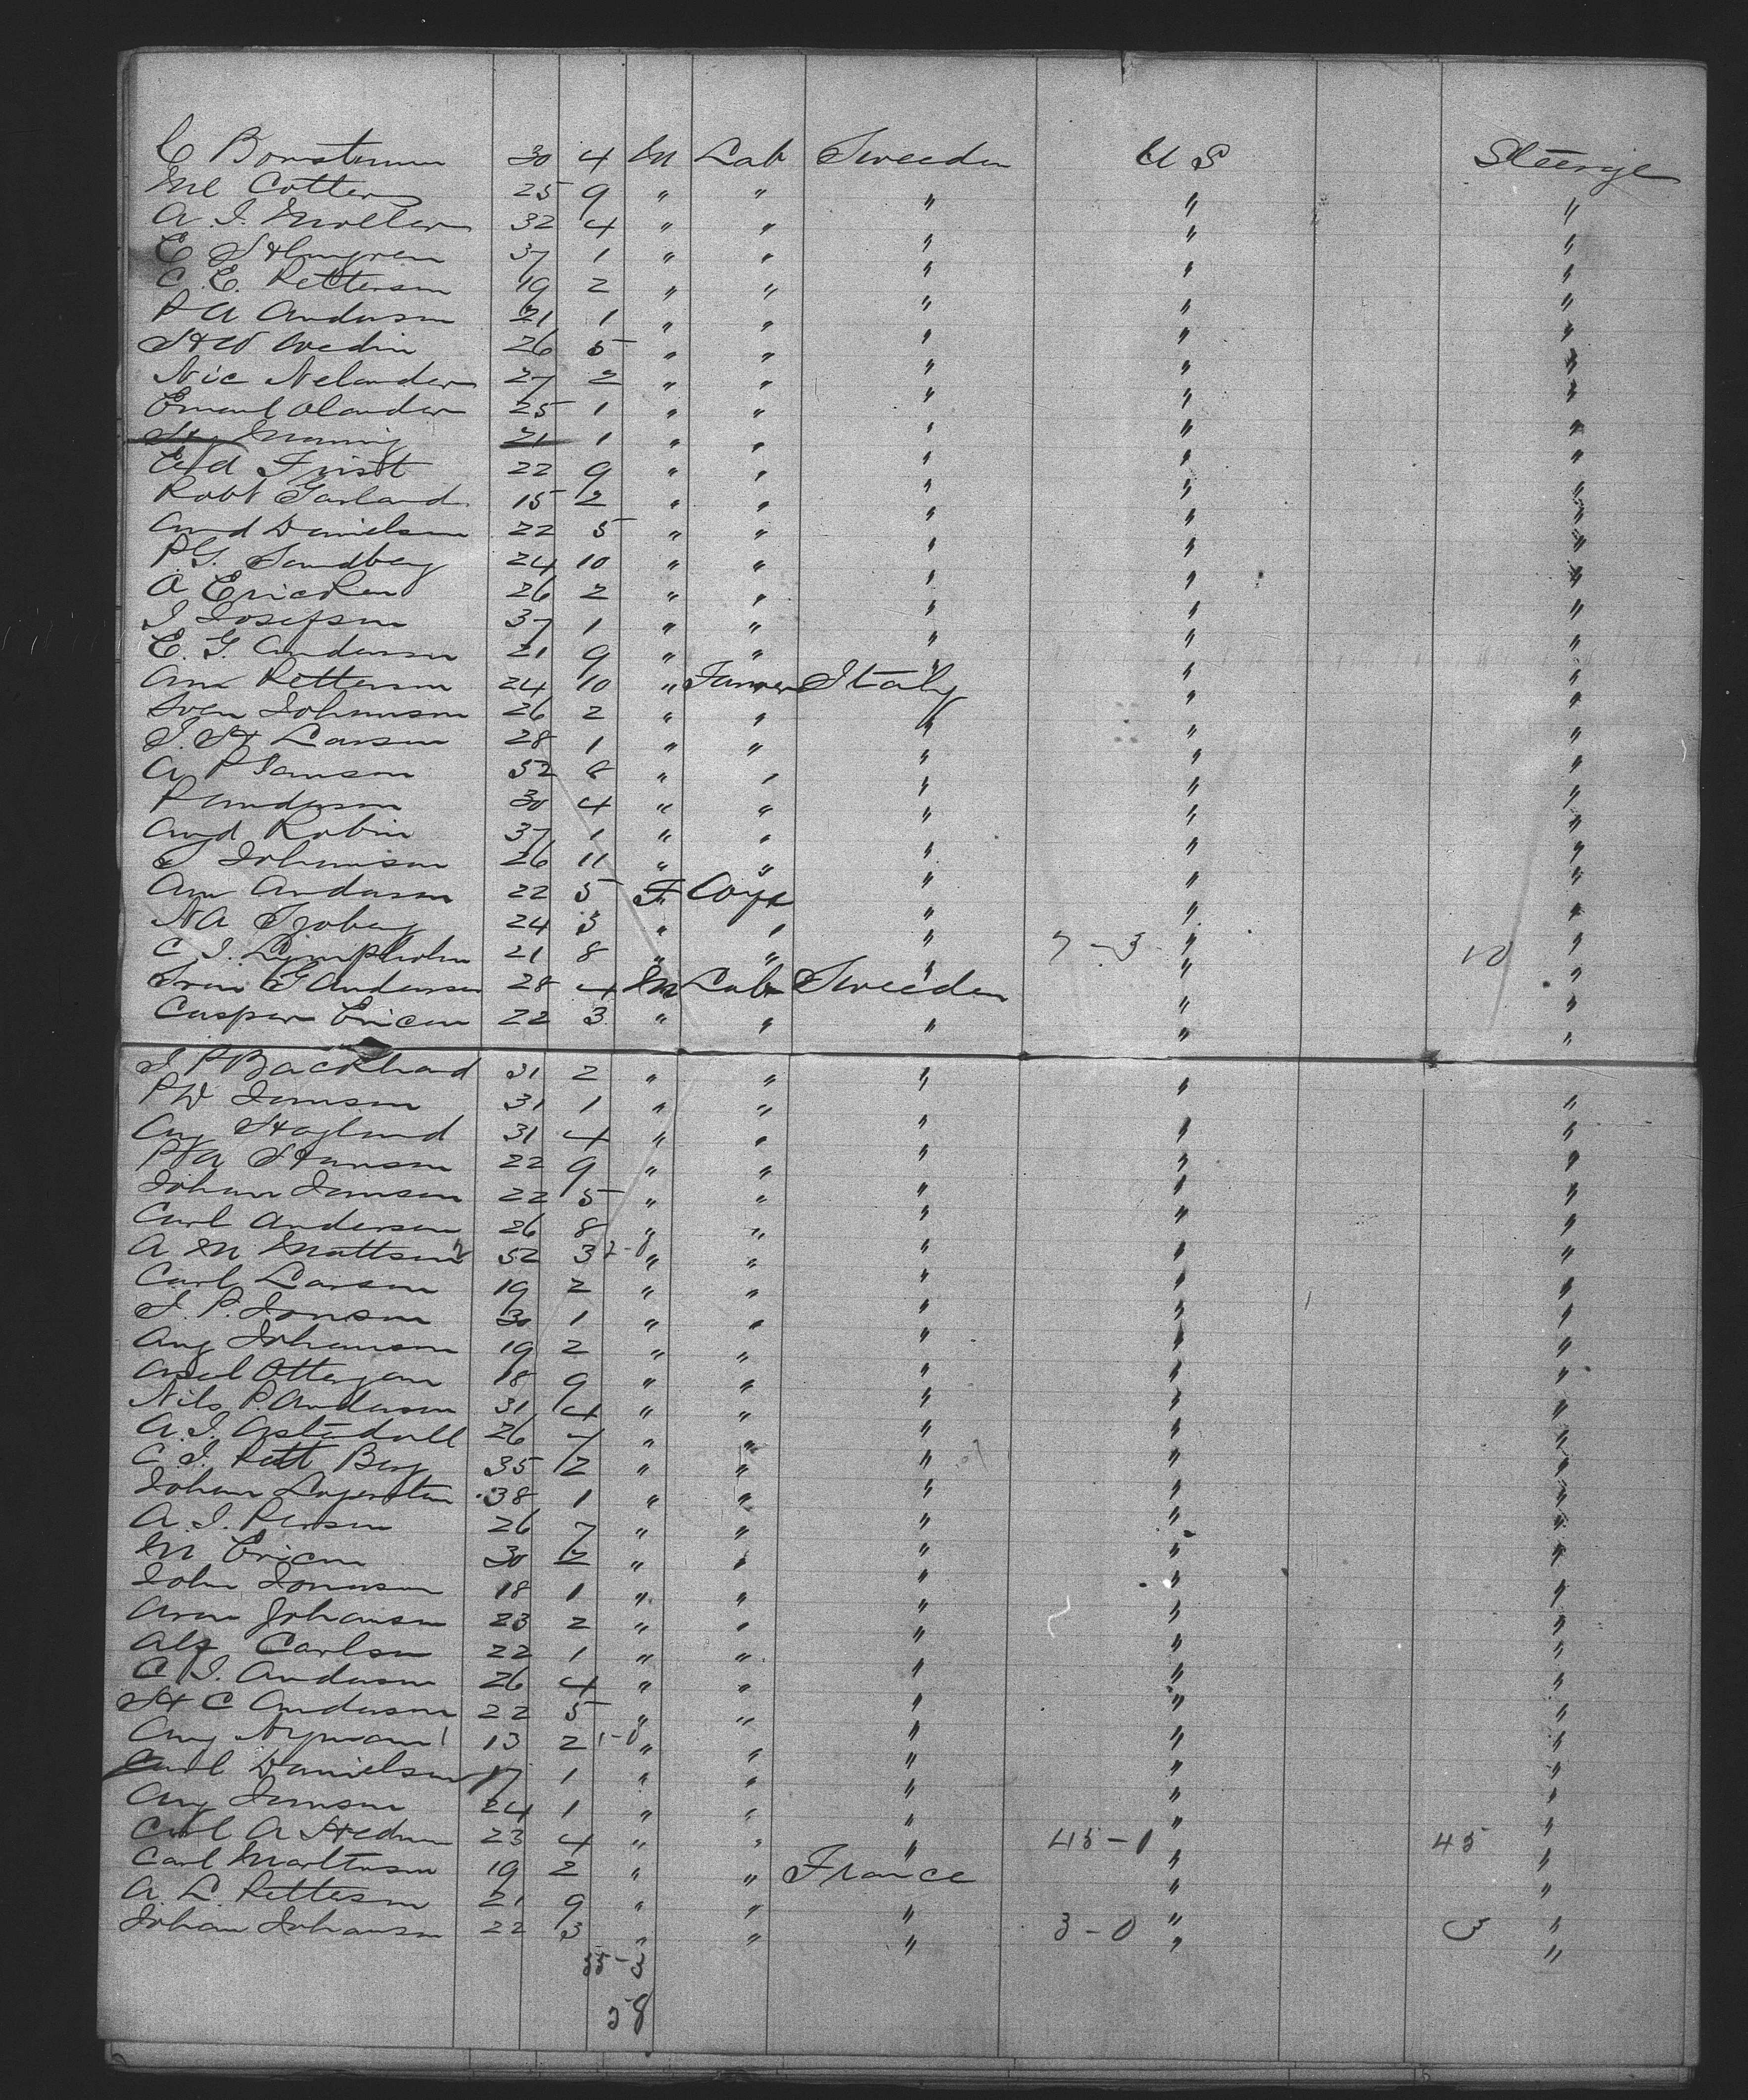 C Bornstrum 30 4 M Lab Sweeden U S Steerige
Ml Cotter 25 9 " " " " "
A. I. Moller 32 4 " " " " "
E Holmgren 37 1 " " " " "
C. E. Petterson 19 2 " " " " "
P A Anderson 21 1 " " " " "
H W Wedin 26 5 " " " " "
Nic Nelander 27 2 " " " " "
Emanl Olander 25 1 " " " " "
21 1 " " " " "
Ed Frist 22 9 " " " " "
Robt Garland 15 2 " " " " "
Arvd Danielson 22 5 " " " " "
P. G. Sandberg 24 10 " " " " "
A Ericksen 26 2 " " " " "
J Josefson 37 1 " " " " "
E. G. Anderson 21 9 " " " " "
Petterson 24 10 " Farmer Italy " "
Sven Johanson 26 2 " " " " "
J. H Larson 28 1 " " " " "
A P Janson 52 8 " " " " "
P Anderson 30 4 " " " " "
Augd Robin 37 1 " " " " "
J Johanson 26 11 " " " " "
Ann Anderson 22 5 F " " "
N A Sjoberg 24 3 " " " " "
C. J. Limpholm 21 8 " " " 7-3 " 10 "
G Anderson 28 4 M Lab Sweeden " "
Casper Ericson 22 3 " " " " "
J P Backhad 31 2 " " " " "
P W Janson 31 1 " " " " "
Aug Hoglund 31 4 " " " " "
P A Hanson 22 9 " " " " "
Johan Janson 22 5 " " " " "
Carl Anderson 26 8 " " " " "
A M Mattson 52 3 " " " " "
Carl Larson 19 2 " " " " "
J. P. Jonson 30 1 " " " " "
Aug Johanson 19 2 " " " " "
Axel Ottergan 18 9 " " " " "
Nils P. Anderson 31 4 " " " " "
A. J. Astedall 26 7 " " " " "
C. J. Pett Berg 35 2 " " " " "
Johan Lagersten 38 1 " " " " "
A. J. Person 26 7 " " " " "
M Ericson 30 2 " " " " "
John Jonason 18 1 " " " " "
Aron Johanson 23 2 " " " " "
Alf Carlson 22 1 " " " " "
C J. Anderson 26 4 " " " " "
H C Anderson 22 5 " " " " "
Aug Nyman 1 13 2 1-0 " " " " "
Carl Danielson 17 1 " " " " "
Aug Janson 24 1 " " " " "
Carl A Hedman 23 4 " " " 45-1 " 45 "
Carl Martinson 19 2 " " France " "
A. L Petterson 21 9 " " " " "
Johan Johanson 22 3 " " " 3-0 " 3 "
55-3
58